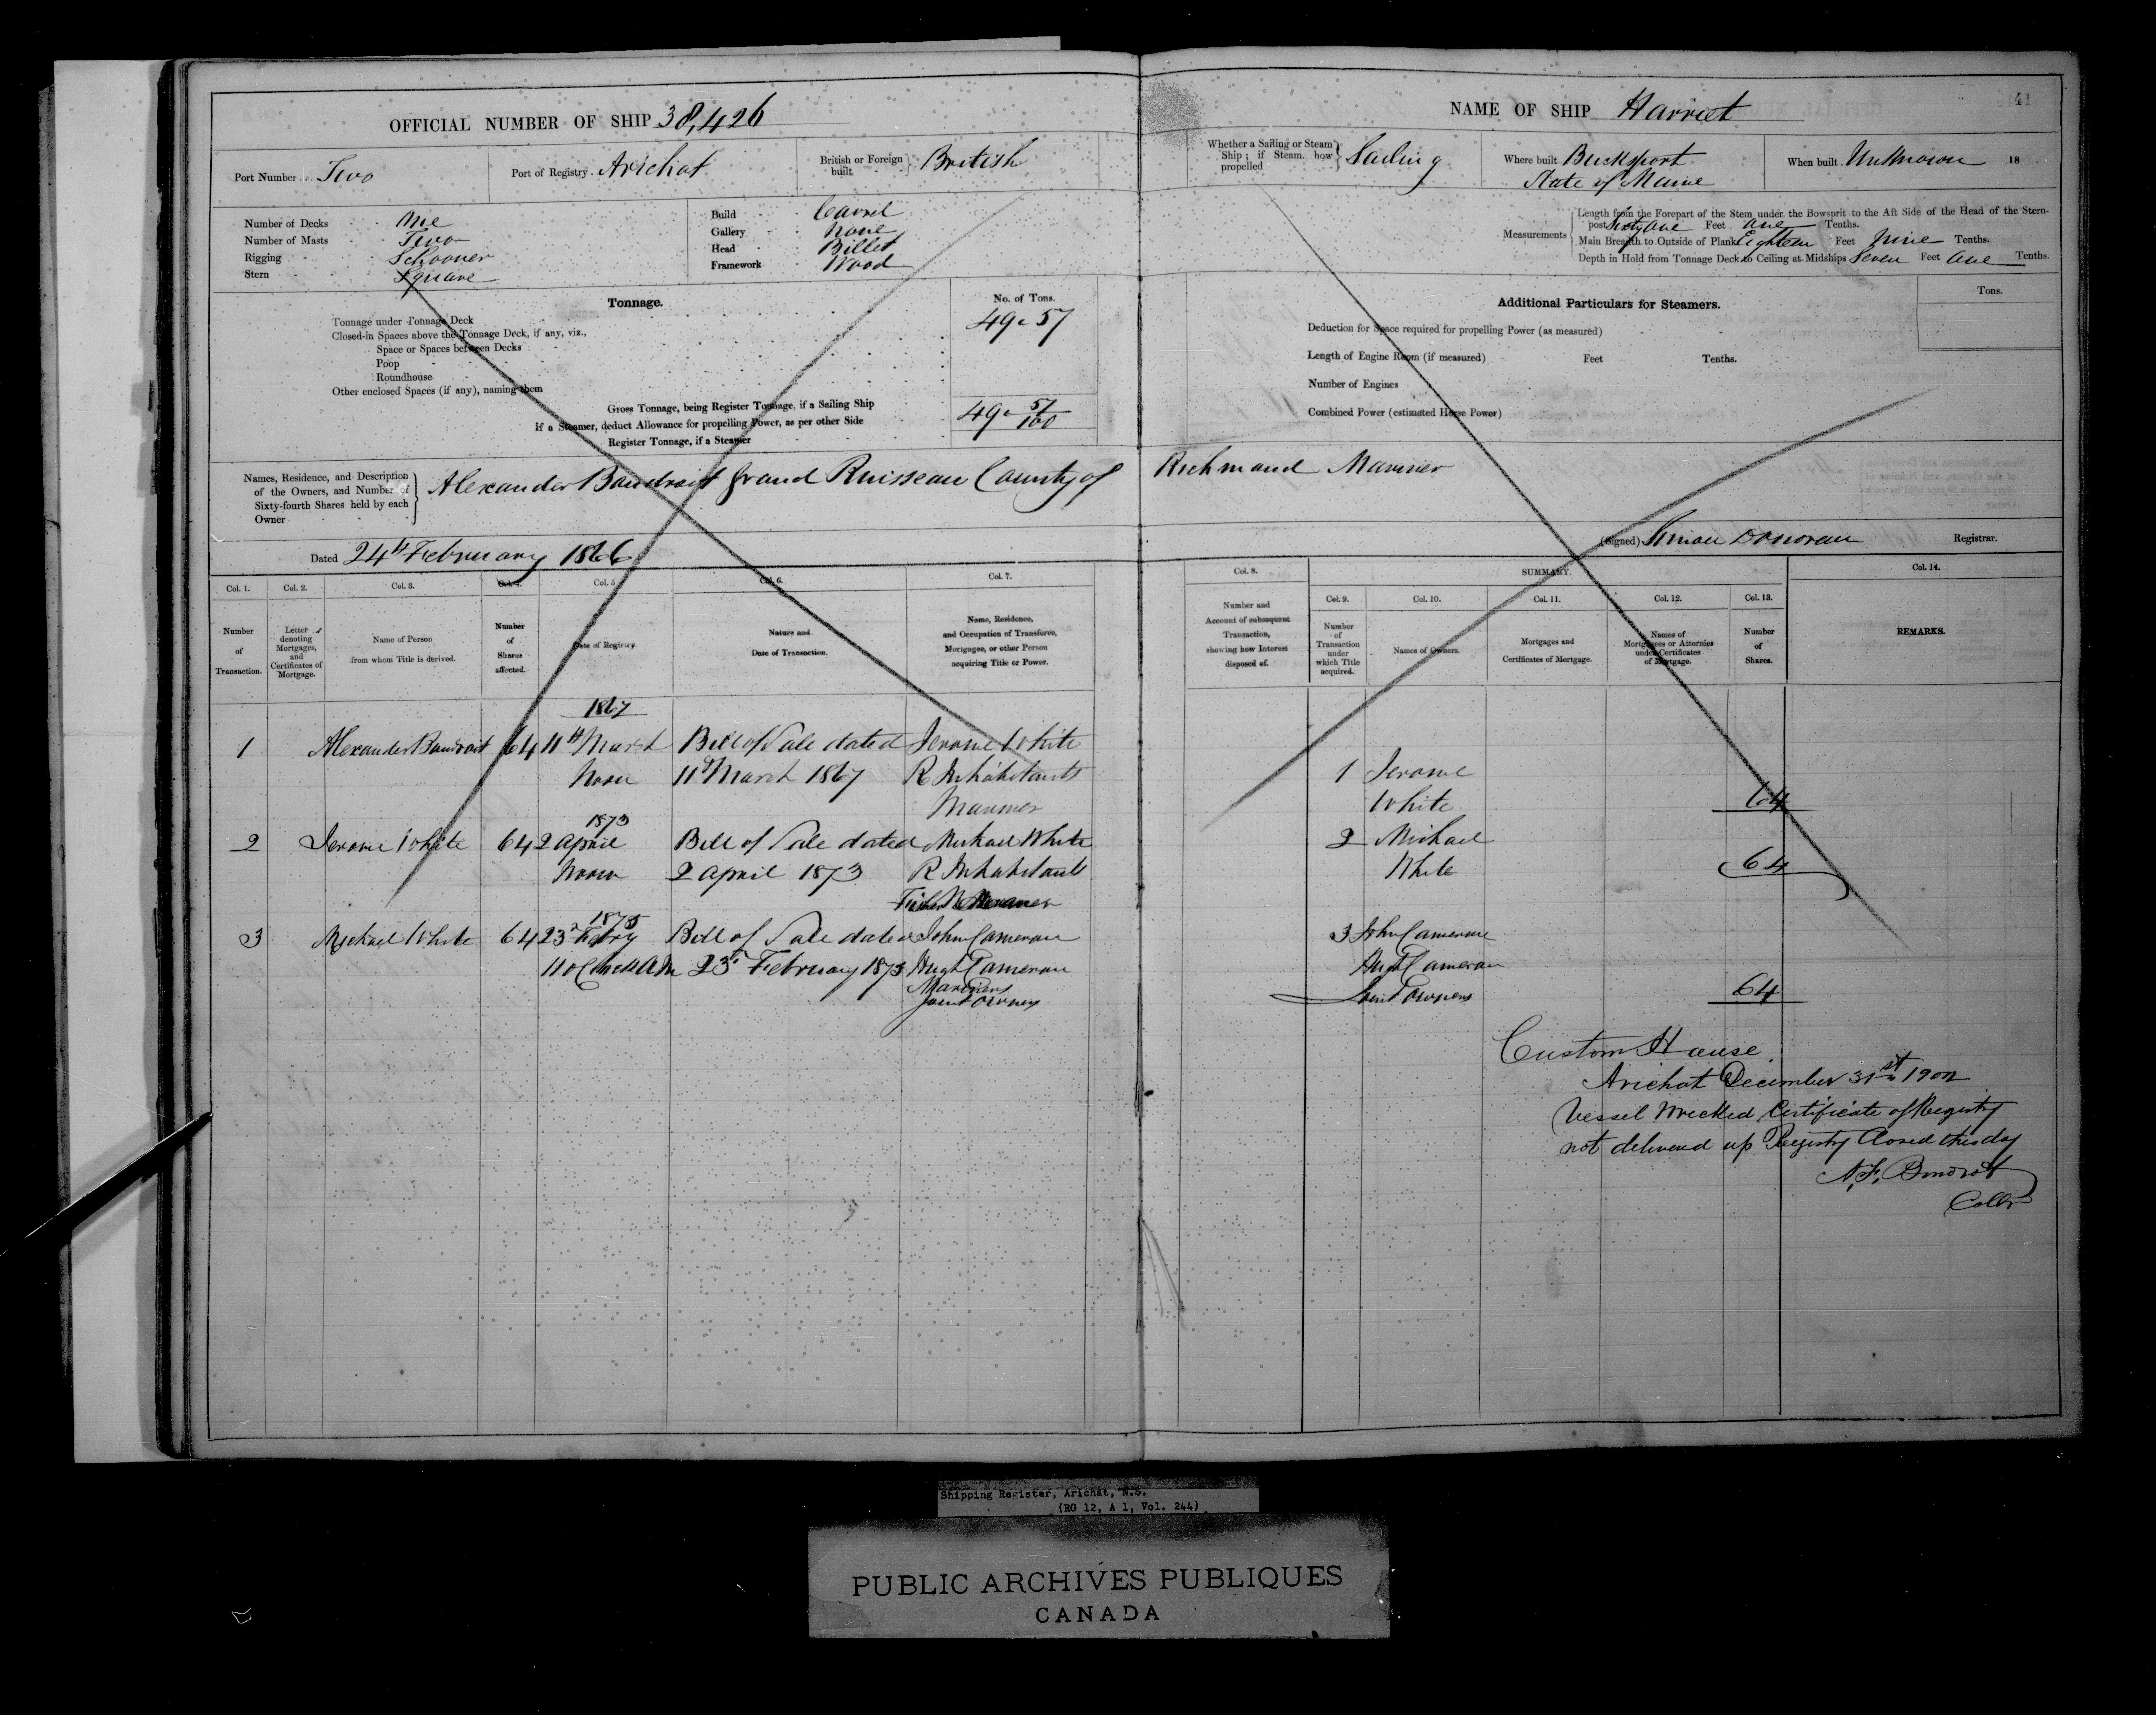 OFFICIAL NUMBER OF SHIP 38,426
Port Number Two
Port of Registry Arichat
British or Foreign built British
Number of Decks One
Number of Masts Two
Rigging Schooner
Stern Square
Build Carvel
Gallery None
Head Billet
Framework Wood
Tonnage.
No. of Tons.
Tonnage under Tonnage Deck 49.57
Closed-in Spaces above the Tonnage Deck, if any, viz.,
Space or Spaces between Decks
Poop
Roundhouse
Other enclosed Spaces (if any), naming them
Gross Tonnage, being Register Tonnage, if a Sailing Ship 49 57/100
If a Steamer, deduct Allowance for propelling Power, as per other Side
Register Tonnage, if a Steamer
NAME OF SHIP Harriet
41
Whether a Sailing or Steam Ship; if Steam, how propelled Sailing
Where built Bucksport State of Maine
When built Unknown 18
Measurements
Length from the Forepart of the Stem under the Bowsprit to the Aft Side of the Head of the Stern-
post Sixty One Feet One Tenths.
Main Breadth to Outside of Plank Eighteen Feet Nine Tenths.
Depth in Hold from Tonnage Deck to Ceiling at Midships Seven Feet One Tenths.
Additional Particulars for Steamers.
Tons.
Deduction for Space required for propelling Power (as measured)
Length of Engine Room (if measured) Feet Tenths.
Number of Engines
Combined Power (estimated Horse Power)
Names, Residence, and Description
of the Owners, and Number of
Sixty-fourth Shares held by each
Owner
Alexander Boudroit Grand Ruisseau County of Richmond Mariner
Dated 24th February 1866
(Signed) Simon Donovan Registrar.
Col. 1. Col. 2. Col. 3. Col. 4. Col. 5. Col. 6. Col. 7.
Number of Transaction.
Letter denoting Mortgages, and Certificates of Mortgage.
Name of Person from whom Title is derived.
Number of Shares affected.
Date of Registry.
Nature and Date of Transaction.
Name, Residence, and Occupation of Transferee, Mortgagee, or other Person acquiring Title or Power.
1867
1 Alexander Boudroit 64 11th March Bill of Sale dated Jerome White
Noon 11th March 1867 R Inhabitants
Mariner
1873
2 Jerome White 64 2 April Bill of Sale dated Michael White
Noon 2 April 1873 R Inhabitants
1875
3 Michael White 64 23d Febry Bill of Sale dated John Cameron
11 o Clock AM 23d February 1875 Hugh Cameron
Mariners
Joint Owners
Col. 8. SUMMARY. Col. 14.
Col. 9. Col. 10. Col. 11. Col. 12. Col. 13.
Number and Account of subsequent Transaction, showing how Interest disposed of.
Number of Transaction under which Title acquired.
Names of Owners.
Mortgages and Certificates of Mortgage.
Names of Mortgagees or Attornies under Certificates of Mortgage.
Number of Shares.
REMARKS.
1 Jerome
White 64
2 Michael
White 64
3 John Cameron
Hugh Cameron
Joint Owners 64
Custom House
Arichat December 31st 1902
Vessel Wrecked, Certificate of Registry
not delivered up Registry Closed this day
Collr
Shipping Register, Arichat, N.S.
(RG 12, A 1, Vol. 244)
PUBLIC ARCHIVES PUBLIQUES
CANADA